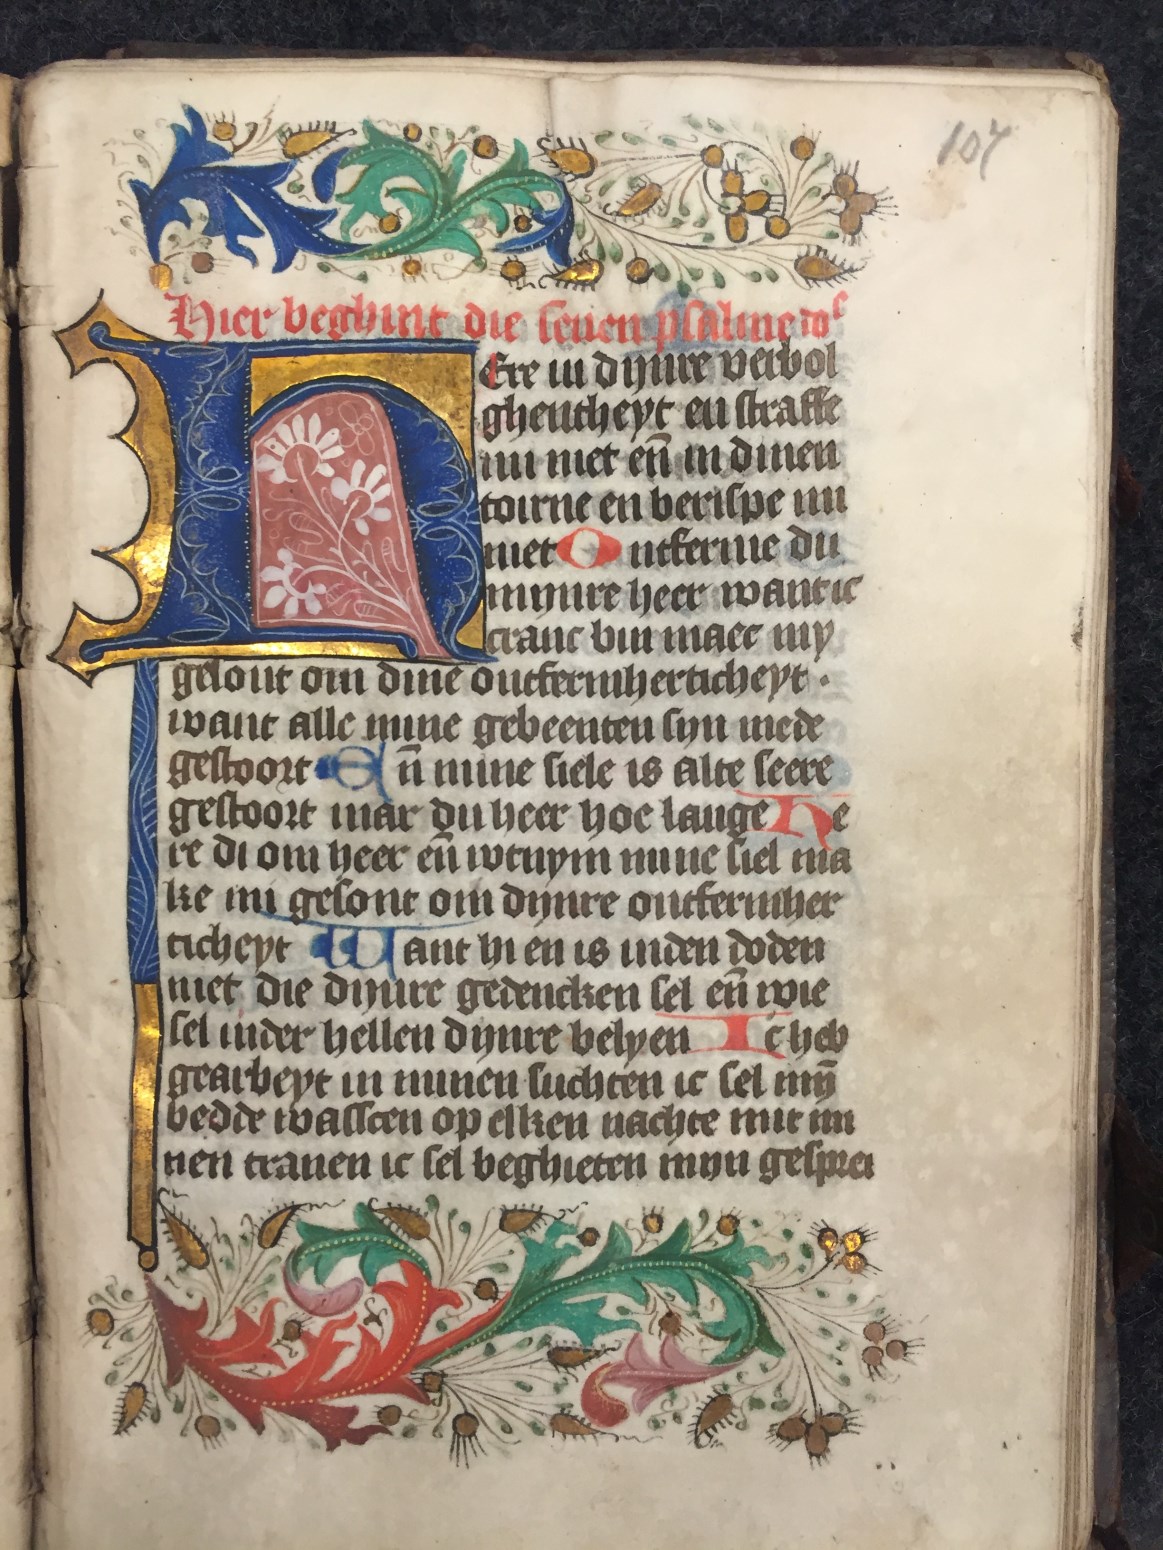 107
Hier beghint die seuen psalme
HEre in dijnre verbol
ghentheyt en straffe
mi niet en̄ in dinen
toirne en berispe mi
niet Ontferme du
mijnre heer want ic
cranc bin maec my
gesont om dine ontfermherticheyt ·
want alle mine gebeenten sijn mede
gestoort En̄ mine siele is alte seere
gestoort mar du heer hoe lange He
re di om heer en̄ wtruym mine siel ma
ke mi gesont om dijnre ontfermher
ticheyt Want hi en is inden doden
niet die dijnre gedencken sel en̄ wie
sel inder hellen dijnre belyen Ic heb
gearbeyt in minen suchten ic sel mij̄
bedde wasscen op elken nachte mit mi
nen tranen ic sel beghieten mijn gesprei